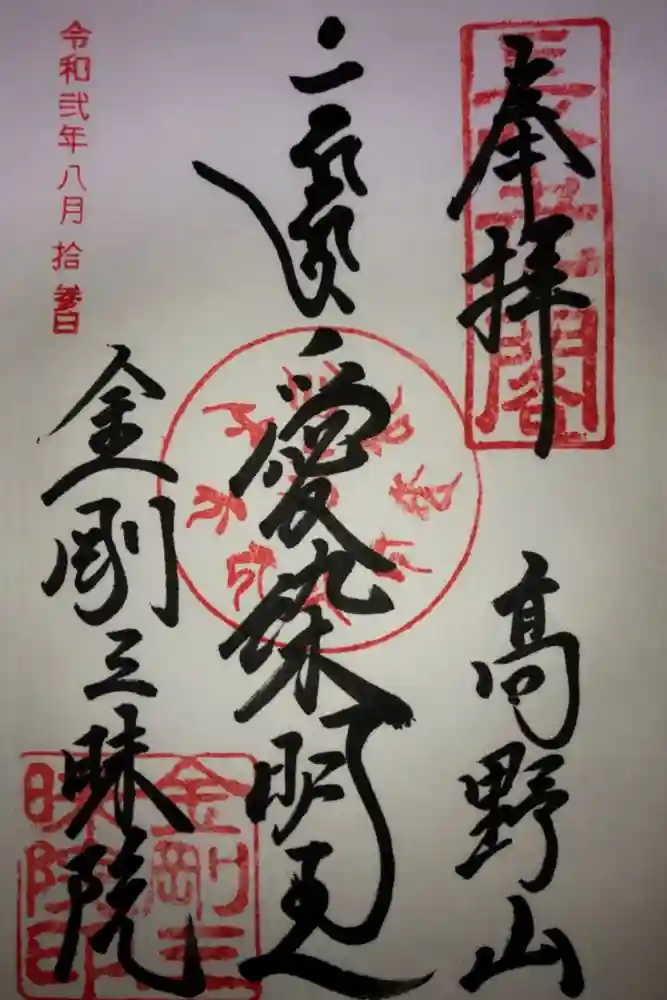 奉拝
高野山
愛染明王
金剛三昧院
令和弐年八月拾参日
金剛三
昧院印